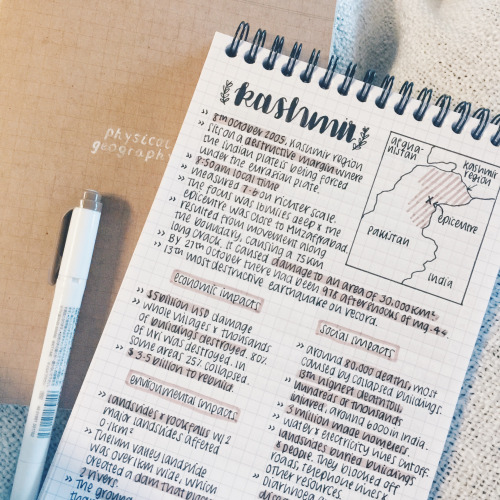 physical
geography
kashmir
» 8th October 2005, Kashmir region
sits on a destructive margin where
the Indian plate is being forced
under the Eurasian plate.
» 8:50am local time
» measured 7.6 on richter scale.
» the focus was 16 miles deep & the
epicentre was close to Muzaffrabad.
» resulted from movement along
the boundary, causing a 75km
long crack. It caused damage to an area of 30,000km².
» By 27th October there had been 978 aftershocks of mg. 4+
» 13th most destructive earthquake on record.
afghanistan
kashmir
region
epicentre
pakistan
india
economic impacts
» $5 billion USD damage
» whole villages & thousands
of buildings destroyed. 80%
of uri was destroyed. in
some areas 25% collapsed.
» $3.5 billion to rebuild.
environmental impacts
» landslides & rockfalls w/ 2
major landslides affected
0.1km²
» Jhelum valley landslide
was over 1km wide, which
created a dam that
2 rivers.
» the ground
social impacts
» around 80,000 deaths, most
caused by collapsed buildings.
» 13th highest death toll
» hundreds of thousands
injured, around 6000 in india.
» 3 million made homeless.
» water & electricity lines cut off.
» landslides buried buildings
& people, they blocked off
roads, telephone lines &
other resources.
» Diarrhoea